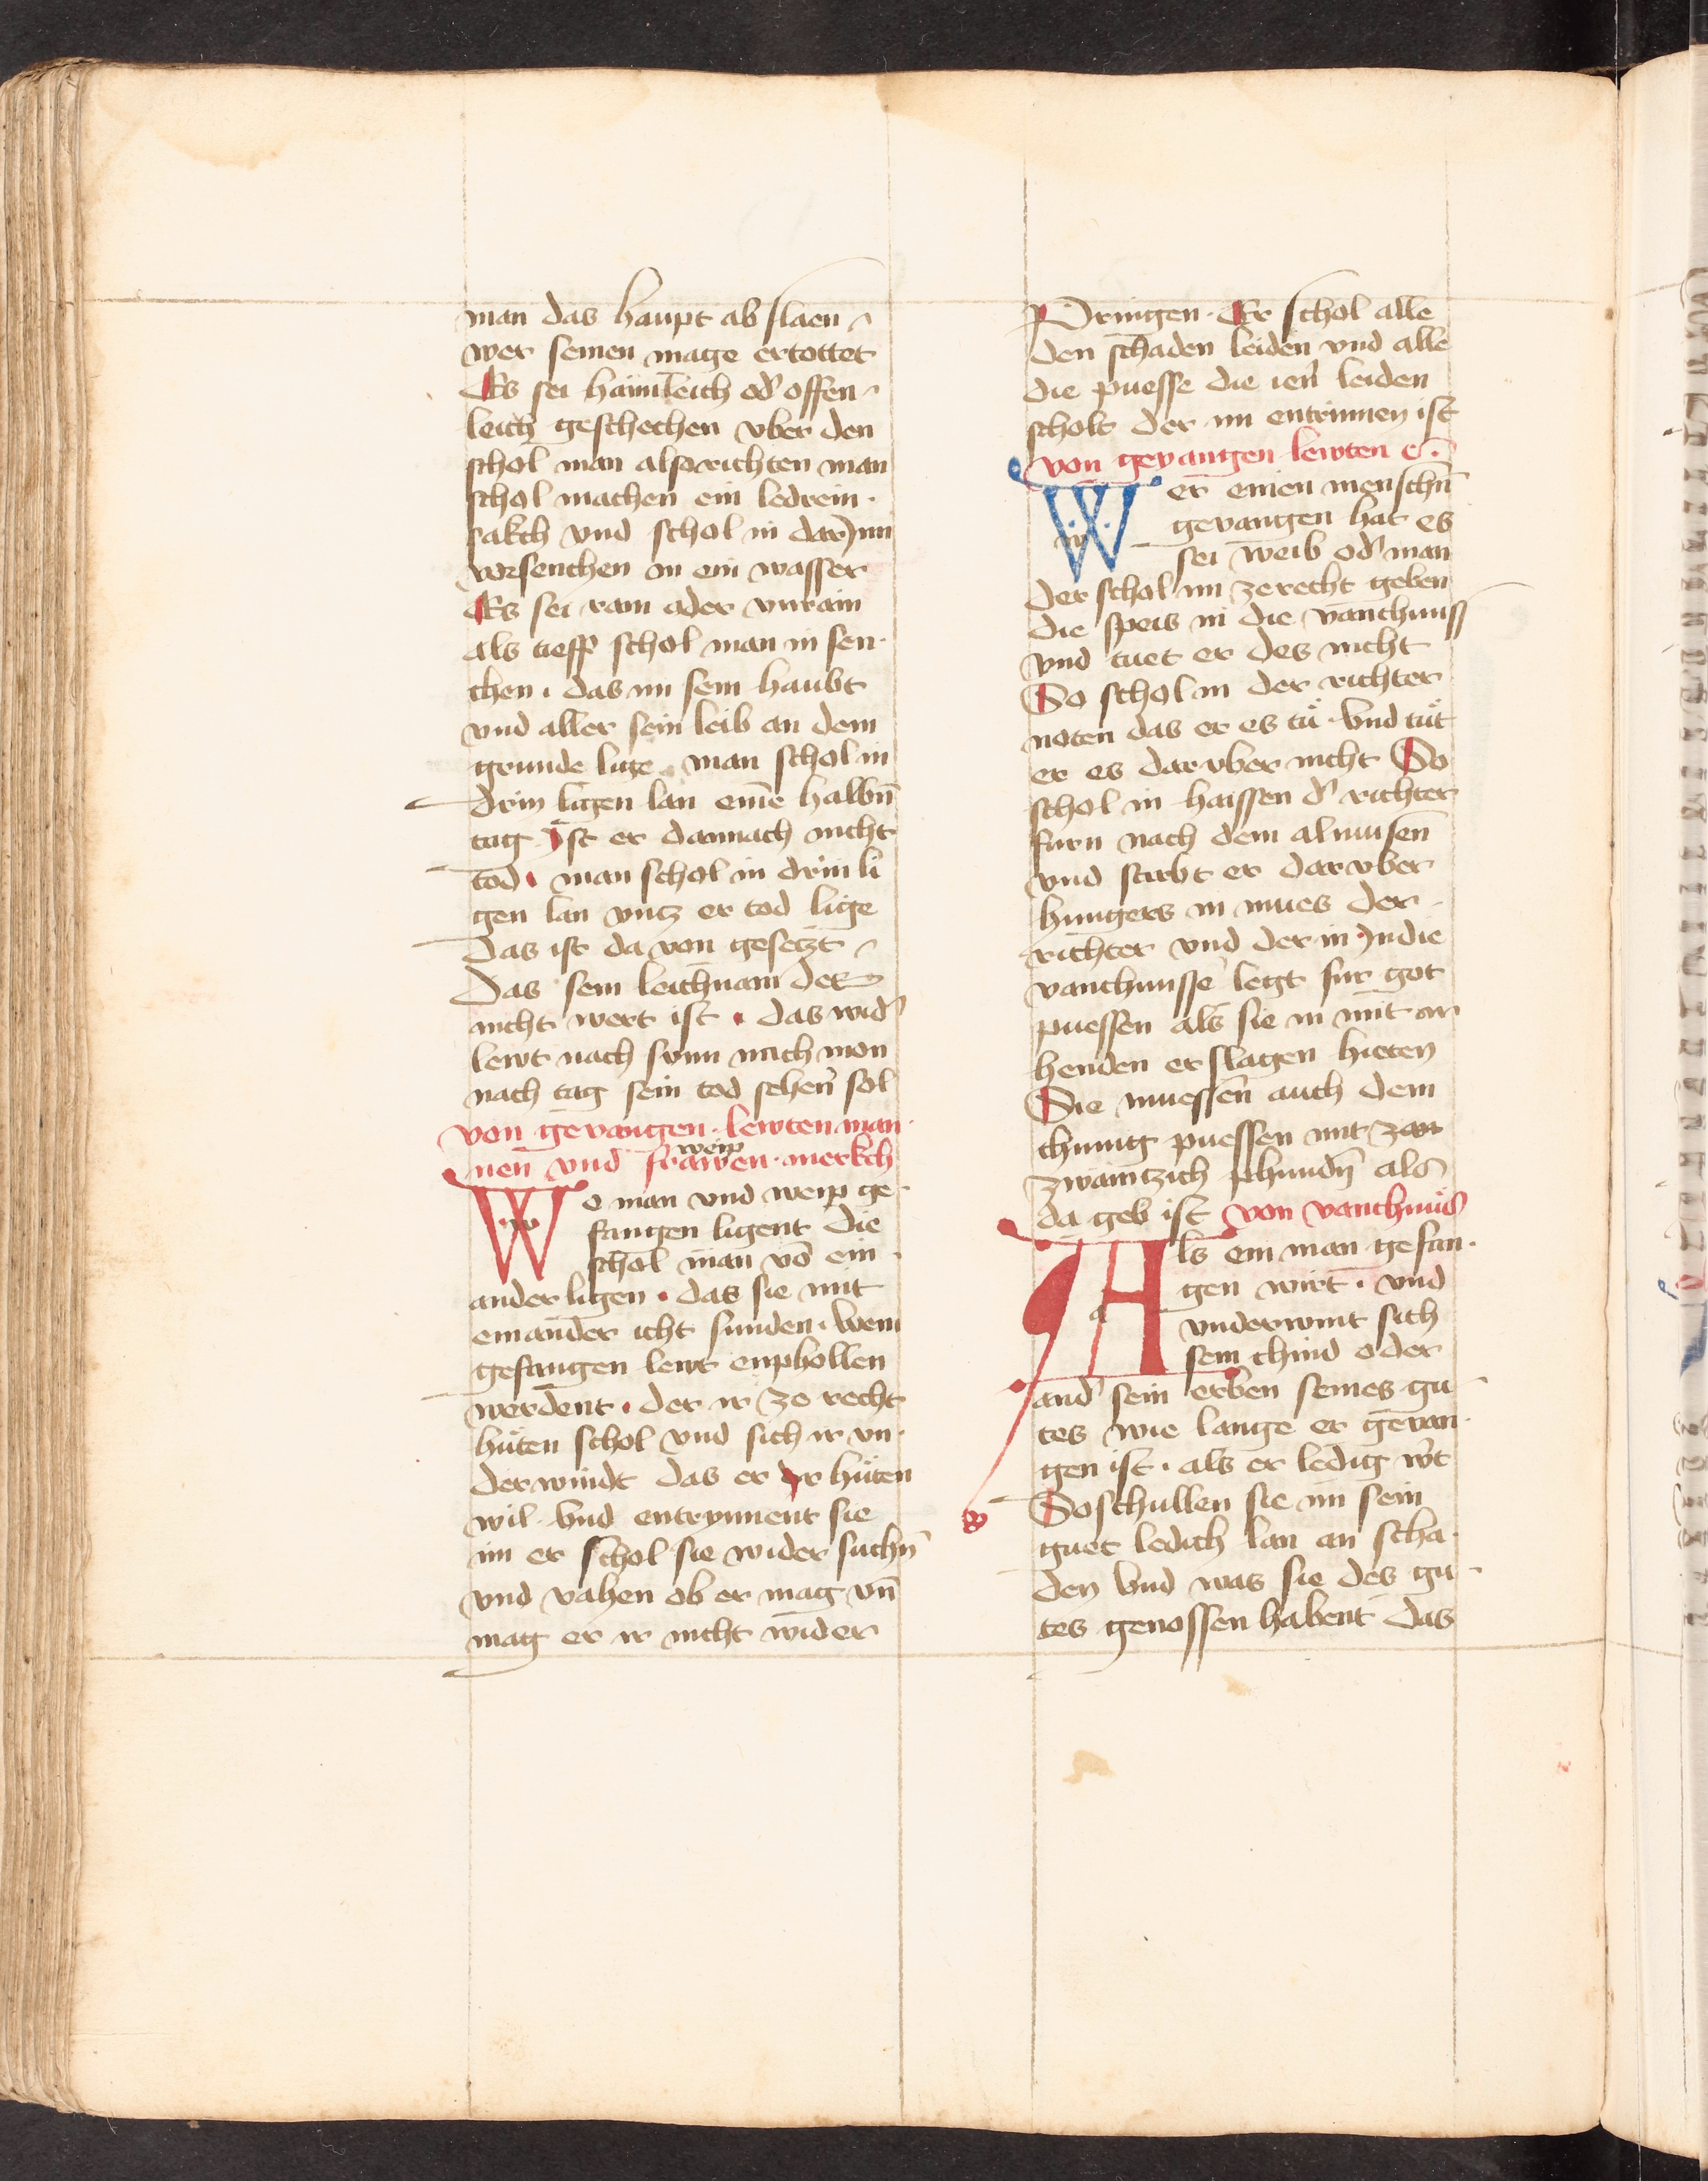 man das haupt ab slaen
wer seinen mage ertottet
Es sei haimleich od' offen
leich geschechen vber den
schol man also richten man
schol machen ein ledrein ·
sakch vnd schol in dar Jnn
versenchen in ein wasser
Es sei rain oder vnrain
als tieff schol man in sen·
chen · das im sein haubt
vnd aller sein leib an dem
grunde lige · man schol in
drin ligen lan eine halbn̄
tag Ist er dannach nicht
tod · man schol in drin li
gen lan vntz er tod lige
Das ist da von gesetzt
Das sein leichnam der
nicht wert ist · das wid'
lewt nach sunn nach mon
nach tag sein tod sehen sol
von gevangen · lewten man·
nen vnd frawen weip · merkch
Wo man vnd weip ge·
fangen ligent die
schol man vō ein ·
ander ligen · das sie mit
einander icht sunden · Wem
gefangen lewt enphollen
werdent · der ir ze recht
hüten schol vnd sich ir vn·
derwindt das er Jr hüten
wil · Vnd entrynnent sie
im er schol sie wider suchn̄
vnd vahen ob er mag vn̄
mag er ir nicht wider
Pringen · Er schol alle
den schaden leiden vnd alle
die puesse die iener leiden
scholt der im entrinnen ist
von gevangen lewten c̄ ·
Wer einen menschn̄
gevangen hat es
sei weib od' man
der schol im ze recht geben
die speis in die vanchnuss
vnd tuet er des nicht
So schol in der richter
noten das er es tü · Vnd tüt
er es darvber nicht So
schol in haissen d' richter
furn nach dem almusen
vnd stirbt er darvber
hungers in mues der ·
richter vnd der in Jn die
vanchnusse legt fur got
puessen als sie in mit ir
henden erslagen hieten
Sie muessen auch dem
chunig puessen mit zwn
zwaintzich phundn̄ als
da geb ist von vanchnüs
Als ein man gefan·
gen wirt · vnd
vnderwint sich
sein chind oder
and' sein erben seines gu
tes wie lange er gevan·
gen ist · als er ledig w't
So schullen sie im sein
guet ledich lan an scha·
den Vnd was sie des gu·
tes genossen habent das